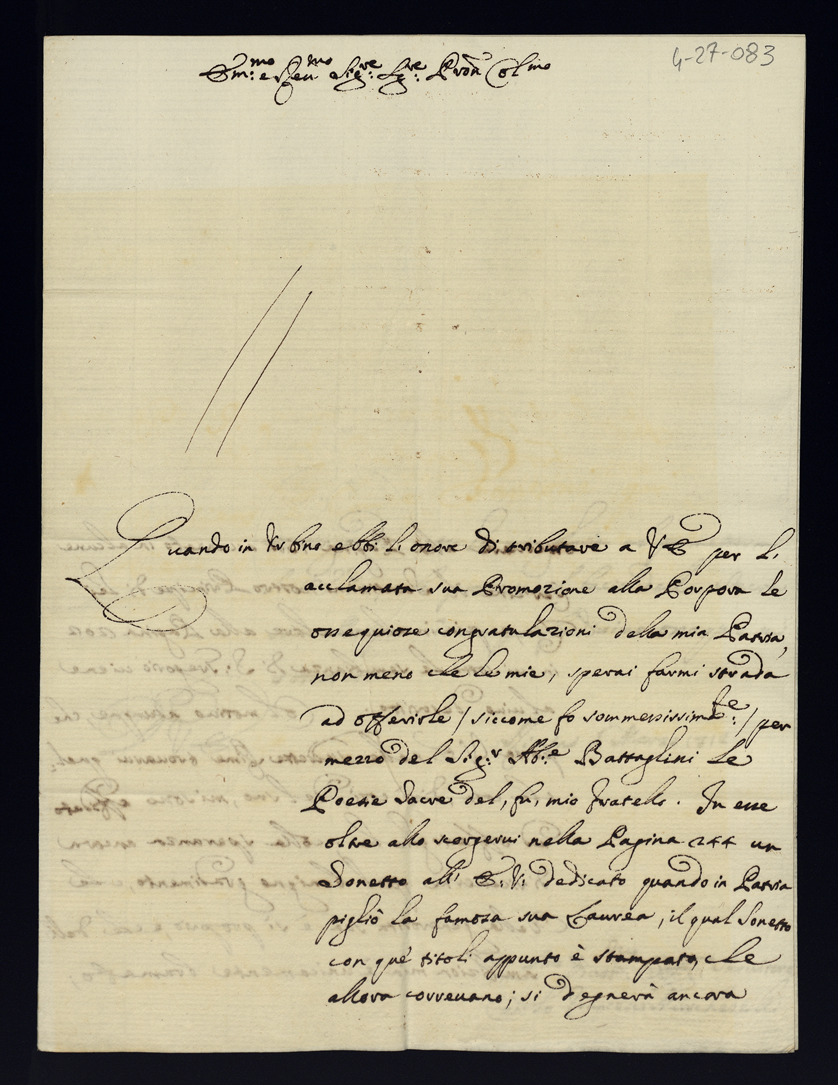 4-27-083
Em:mo e Rev:mo Sig:re Sig:re Pron Col:mo
Quando in Urbino ebbi l'onore di tributare a VE per l'
acclamata sua Promozione alla Porpora le
ossequiose congratulazioni della mia Patria,
non meno che le mie, sperai farmi strada
ad offerirle / siccome fo sommessissimte: / per
mezzo del Sig:r Ab:e Battaglini le
Poesie Sacre del, fu, mio fratello. In esse
oltre allo scorgervi nella Pagina 244 un
Sonetto all' E. V. dedicato quando in Patria
pigliò la famosa sua Laurea, il qual Sonetto
con què titoli appunto è stampato, che
allora correvano; si degnerà ancora